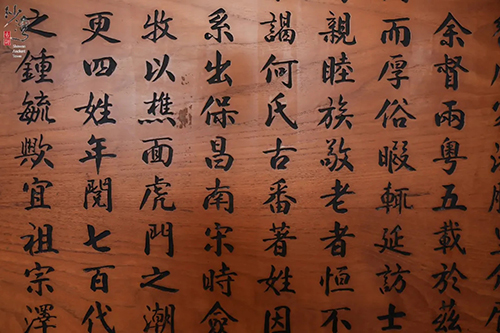 余督兩粵五載於茲
而厚俗暇輒延訪士
親睦族敬老者恒不
謁何氏古番著姓因
系出保昌南宋時僉
牧以樵面虎門之潮
更四姓年閱七百代
之鍾毓歟宜祖宗澤